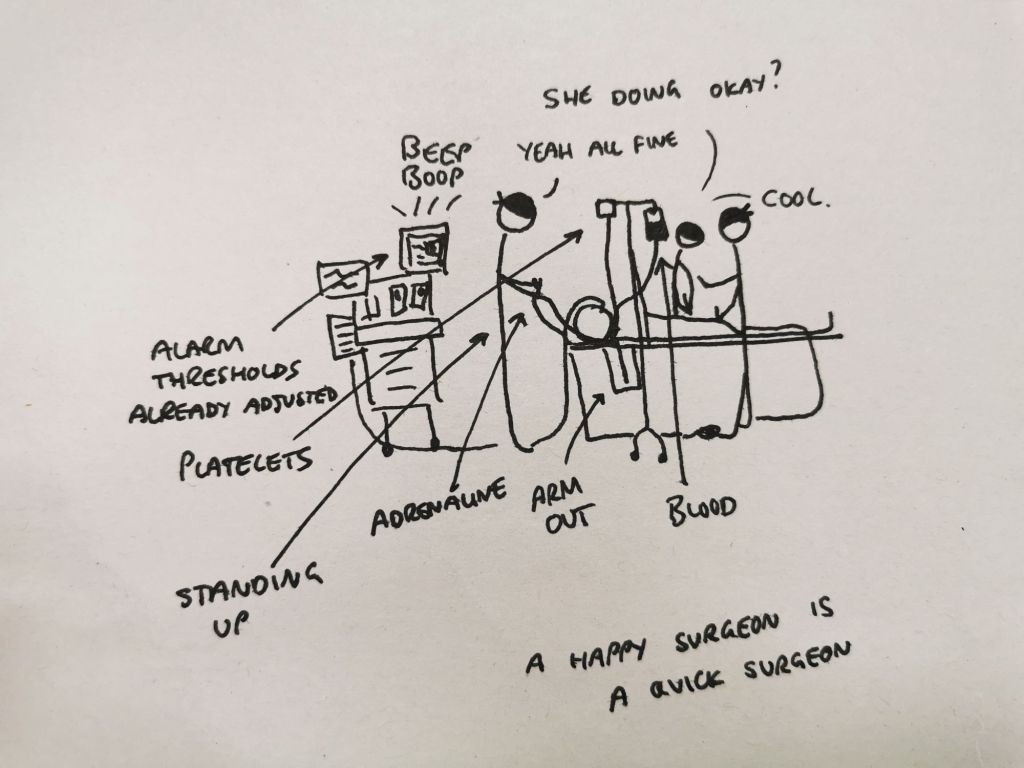 SHE DOING OKAY?
YEAH ALL FINE
BEEP
BOOP
COOL.
ALARM
THRESHOLDS
ALREADY ADJUSTED
PLATELETS
ADRENALINE
ARM
OUT
BLOOD
STANDING
UP
A HAPPY SURGEON IS
A QUICK SURGEON